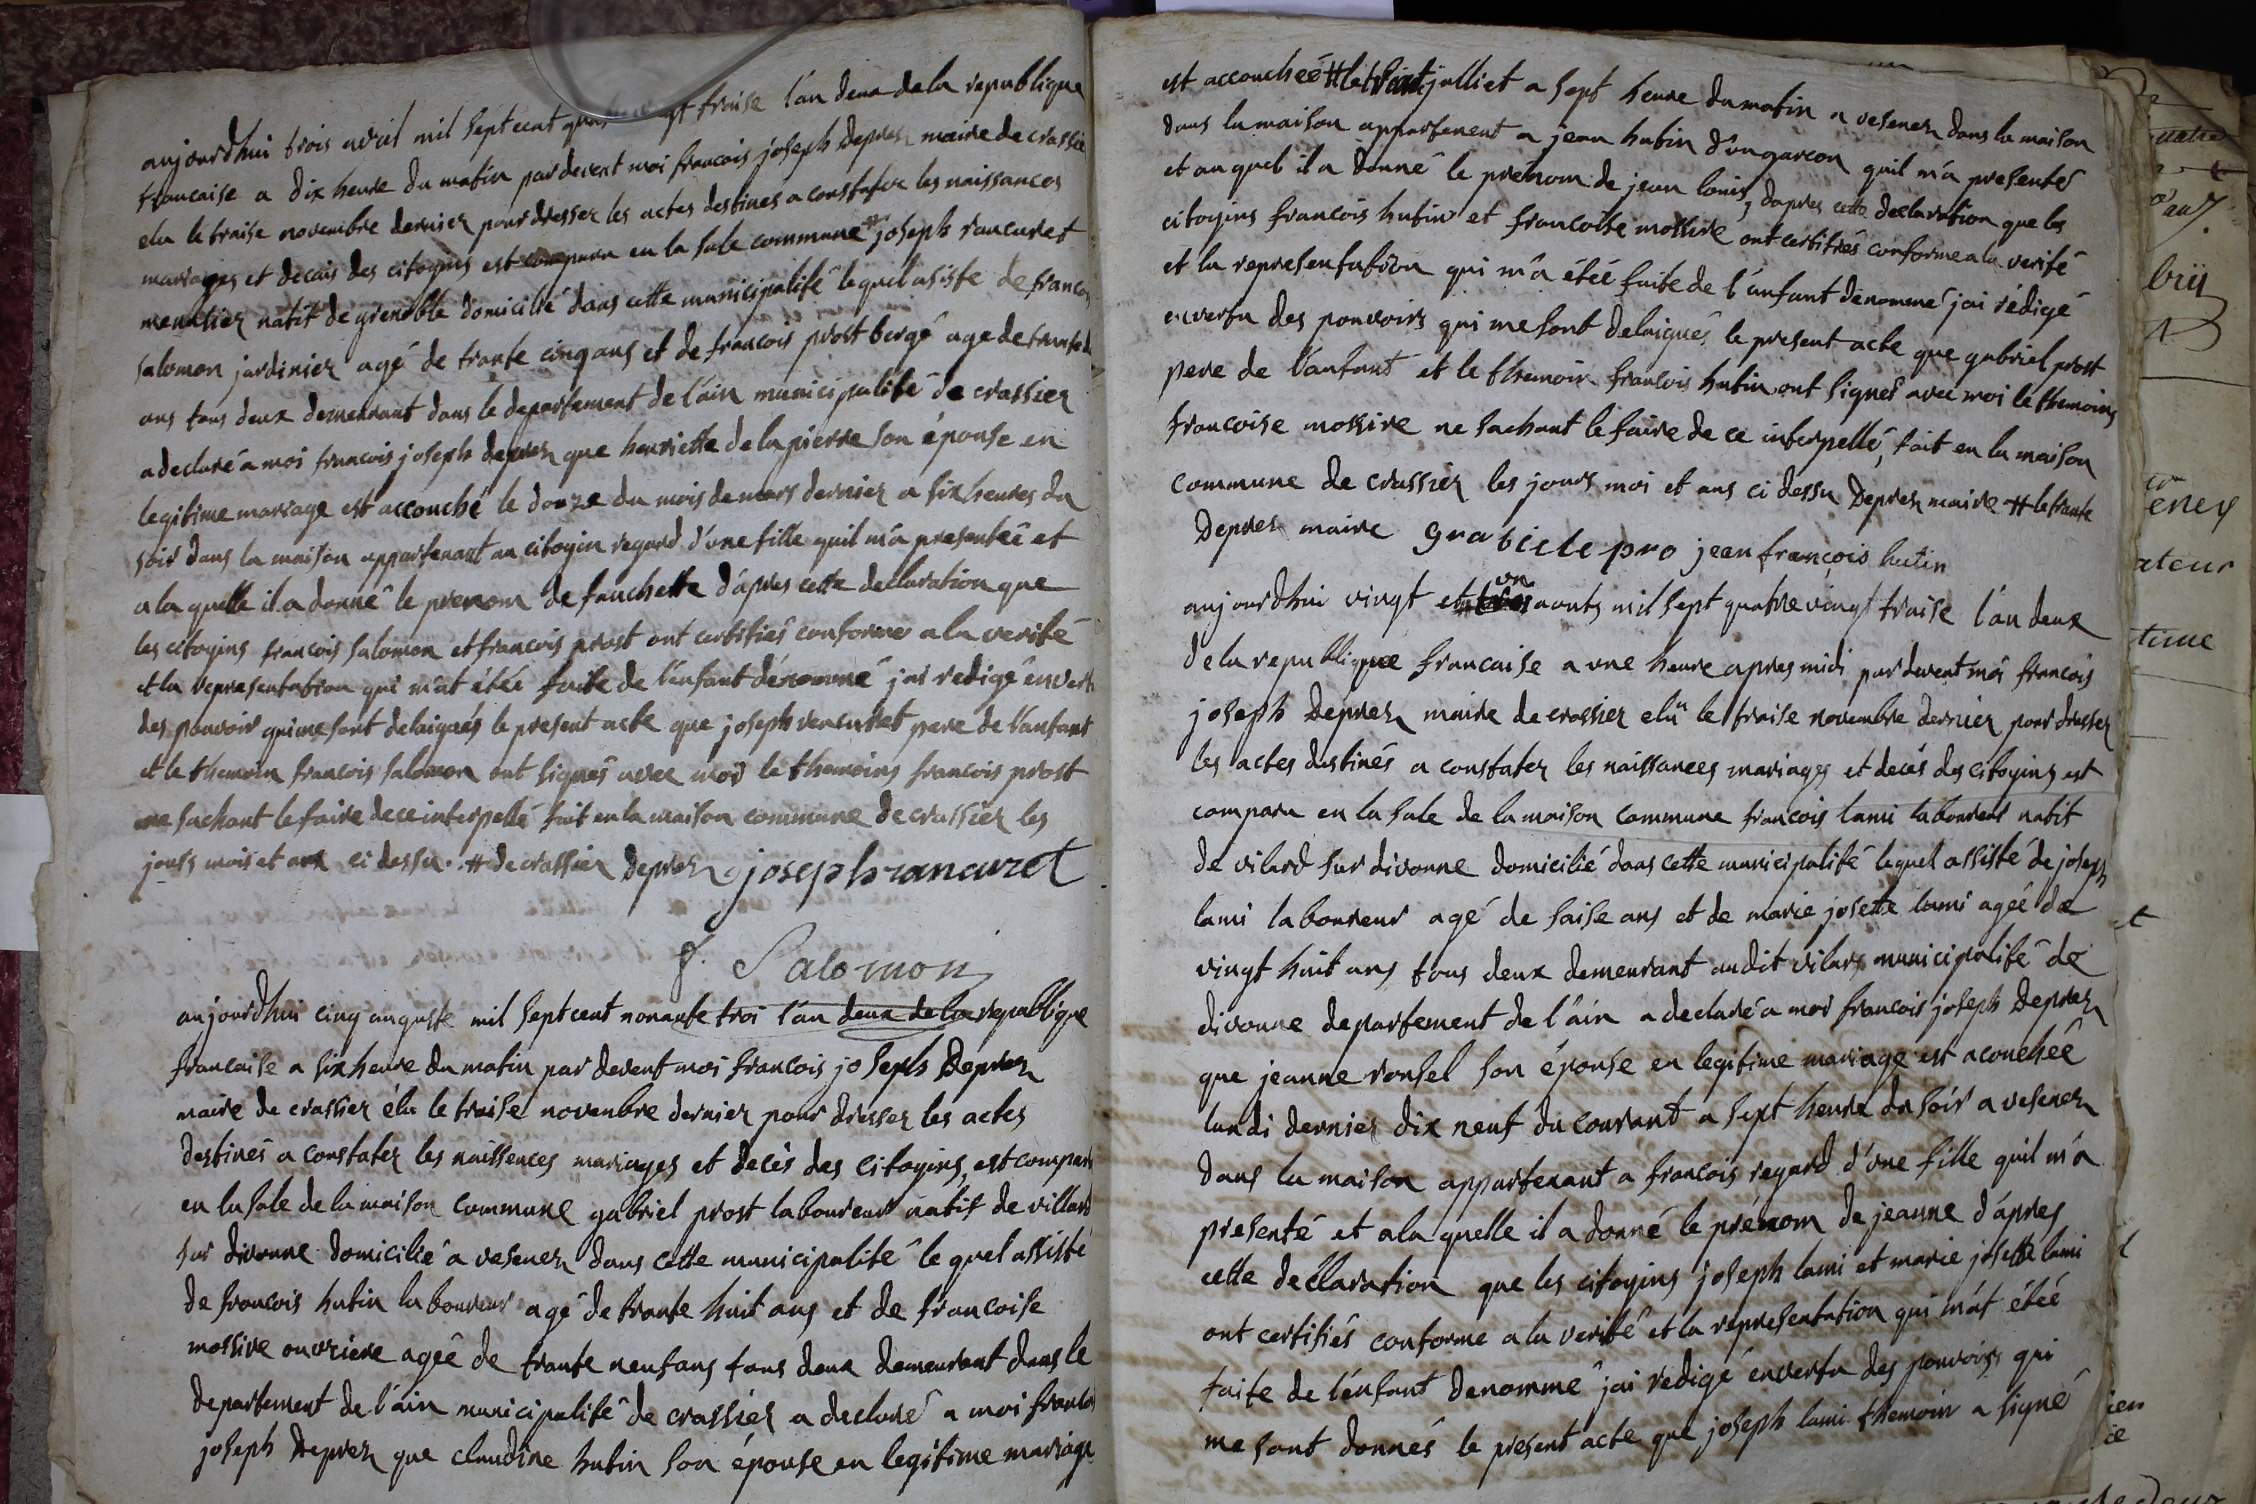 aujourdhui trois avril mil sept cent traise l'an deux de la republique
francaise a dix heure du matin par devent moi francois joseph Deprez maire de crassie
elu le traise novembre dernier pour dresser les actes destines a constater les naissances
mariages et decais des citoyins est comparu en la sale commune # joseph rancuret
menusier natif de grenoble domicilié dans cette municipalité lequel asiste de francois
salomon jardinier agé de trante cinq ans et de francois prost bergé age de trante
ans tous deux demeurant dans le departement de l'ain municipalité de crassier
a declaré a moi francois joseph deprez que henriette delapierre son épouse en
legitime mariage est accouché le douze du mois de mars dernier a six heures du
soir dans la maison appartenant au citoyin regard d'une fille quil m'a presenteé et
a la quelle il a donné le prenom de fanchette d'apres cette declaration que
les citoyins francois salomon et francois prost ont certifiés conforme a la verité
et la representation qui m'at étéé faite de l'enfant dénommé j'ai redigé en vert
des pouvoir qui me sont delaiqués le present acte que joseph rencuret pere de l'anfant
et le themoin francois salomon ont signés avec moi le themoins francois prost
ne sachant le faire de ce interpellé fait en la maison commune de crassier les
jours mois et ans ci dessu. # de crassier Deprez joseph rancuret
f. Salomon
aujourdhui cinq auguste mil sept cent nonante troi l'an deux de la republique
francaise a six heure du matin par devent moi francois joseph Deprez
maire de crassier élu le traise novembre dernier pour dresser les actes
destinés a constater les naissences mariages et decès des citoyins, est comparu
en la sale de la maison commune gabriel prost laboureur natif de villard
sur divonne domicilié a vesenez dans cette municipalité le quel assisté
de francois hutin laboureur agé de trante huit ans et de francoise
mossire ouvriere agée de trante neuf ans tous deux demeurant dans le
departement de l'ain municipalité de crassier a declaré a moi francoi
joseph Deprez que claudine hutin son épouse en legitime mariage
est accouchéé # le julliet a sept heure du matin a vesenez dans la maison
dans la maison appartenent a jean hutin d'un garcon quil m'a presenté
et au quel il a donné le prénom de jean louis, d'apres cette declaration que les
citoyins francois hutin et francoise mossire ont certifiés conforme a la verité
et la representation qui m'a étéé faite de l'anfant denommé j'ai rédigé
en vertu des pouvoirs qui me sont delaiqués le present acte que gabriel prost
pere de l'anfant et le themoin francois hutin ont signés avec moi le themoins
francoise mossire ne sachant le faire de ce interpellé, fait en la maison
commune de crassier les jours moi et ans ci dessu Deprez maire # le trante
Deprez maire grabiele pro jean françois hutin
aujourdhui vingt et un aouts mil sept quatre vingt traise l'an deux
de la republique francaise a une heure apres midi par devent moi francois
joseph Deprez maire de crassier elü le traise novembre dernier pour dresser
les actes destinés a constater les naissances mariages et decés des citoyins est
comparu en la sale de la maison commune francois lami laboureur natif
de vilard sur divonne domicilié dans cette municipalité lequel assisté de joseph
lami laboureur agé de saise ans et de marie josette lami agéé de
vingt huit ans tous deux demeurant audit vilars municipalité de
divonne departement de l'ain a declaré a moi francois joseph Deprez
que jeanne ronsel son épouse en legitime mariage est acouchéé
lundi dernier dix neuf du courant a sept heure du soir a vesenez
dans la maison appartenant a francois regard d'une fille quil m'a
presenté et a la quelle il a donné le prénom de jeanne d'apres
cette declaration que les citoyins joseph lami et marie josette lami
ont certifiés conforme a la verité et la representation qui m'at étéé
faite de l'enfant denommé j'ai redigé en vertu des pouvoirs qui
me sont donnés le present acte que joseph lami themoin a signé